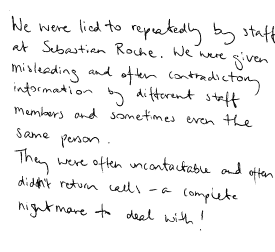 We were lied to repeatedly by staff
at Sebastian Roche. We were given
misleading and often contradictory
information by different staff
members and sometimes even the
same person.
They were often uncontactable and often
didn't return calls - a complete
nightmare to deal with!